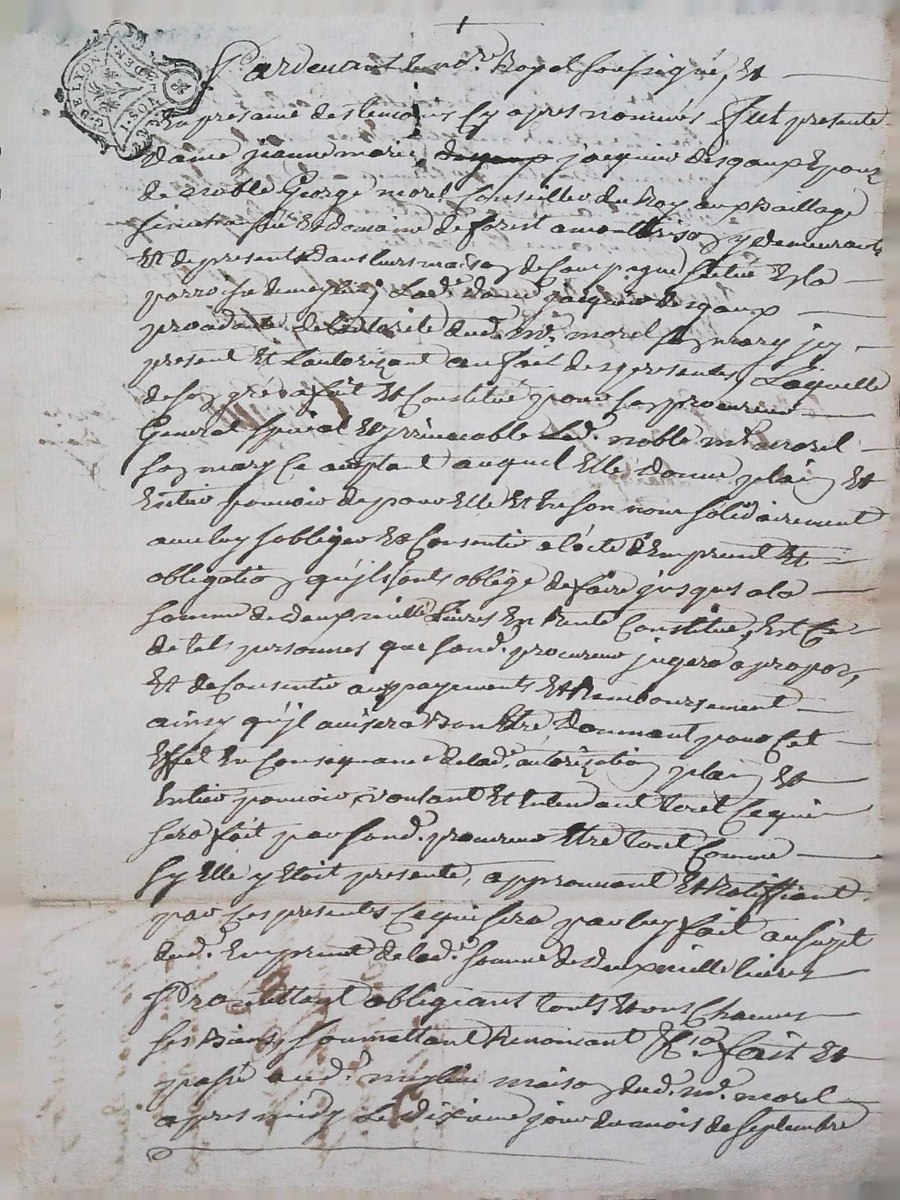 G. DE LYON
DEN.
Pardevant le no.re Royal soussigné, Et
En presance des temoins cy apres nommés fut presente
Dame jeanne marie jacquine desgaux Epouze
de noble George morel Conseiller du Roy aux Bailliage
Et domaine de forest a montbrison y demeurants
Et de presents dans leurs maison de Campagne scituée En la
parroisse de lad.e dame jacquine desgaux
procedante de Lautorité dud. m.r morel son mary jcy
present Et Lautorizant au fait des presentes, Laquelle
de son gré a fait Et Constitué pour son procureur
General special Et jrrevocable Led. noble m.r morel
son mary Ce acceptant auquel Elle donne plain Et
Entier pouvoir de pour Elle Et En son nom solidairement
avec luy sobliger Et Consentir a lacte dEmprunt Et
obligation qu'jls sonts obligé de faire jusques a la
somme de deux mille Livres En Rente Constituée, Est Ce
de tels personnes que sond. procureur jugera a propos,
Et de Consentir aux payements Et Remboursement
ainsy qu'jl avisera Bon Etre, Donnant pour Cet
Effet En Consequance de lad. autorization plain Et
Entier pouvoir, voulant Et Entendant tout Ce qui
sera fait par sond. procureur Etre tout Comme
sy Elle y Etoit presente, approuvant Et Ratiffiant
par Ces presentes Ce qui sera par luy fait au sujet
dud. Emprunt de lad. somme de deux mille livres
Promettant obligeant touts Et uns Chacuns
ses Biens, soumettant Renoncant &ca fait Et
passé aud. maison dud. m.r morel
apres midy Le dixieme jour du mois de septembre